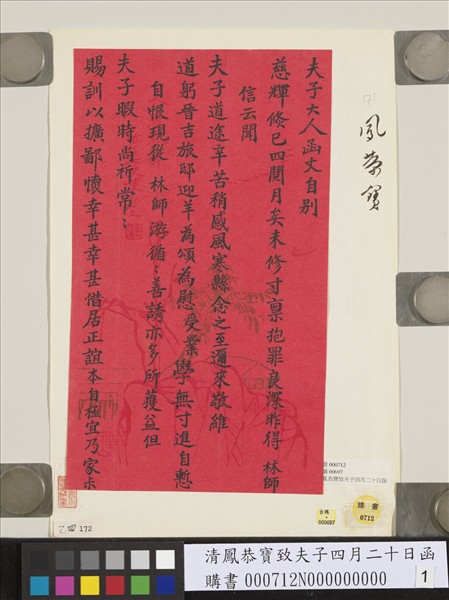 夫子大人函丈自別
慈輝倏已四閱月矣未修寸稟抱罪良深昨得 林師
信云聞
夫子道途辛苦稍感風寒縣念之至邇來敬維
道躬晉吉旅邸迎羊為頌為慰受業學無寸進自慙
自恨現從 林師游循〻善誘亦多所獲益但
夫子暇時尚祈常〻
賜訓以擴鄙懷幸甚幸甚偕居正誼本自極宜乃家
鳳
寶
000712
00697
鳳恭寶致夫子四月二十日函
購書
0712
台購
000697
乙四 172
清鳳恭寶致夫子四月二十日函
購書 000712N000000000
1